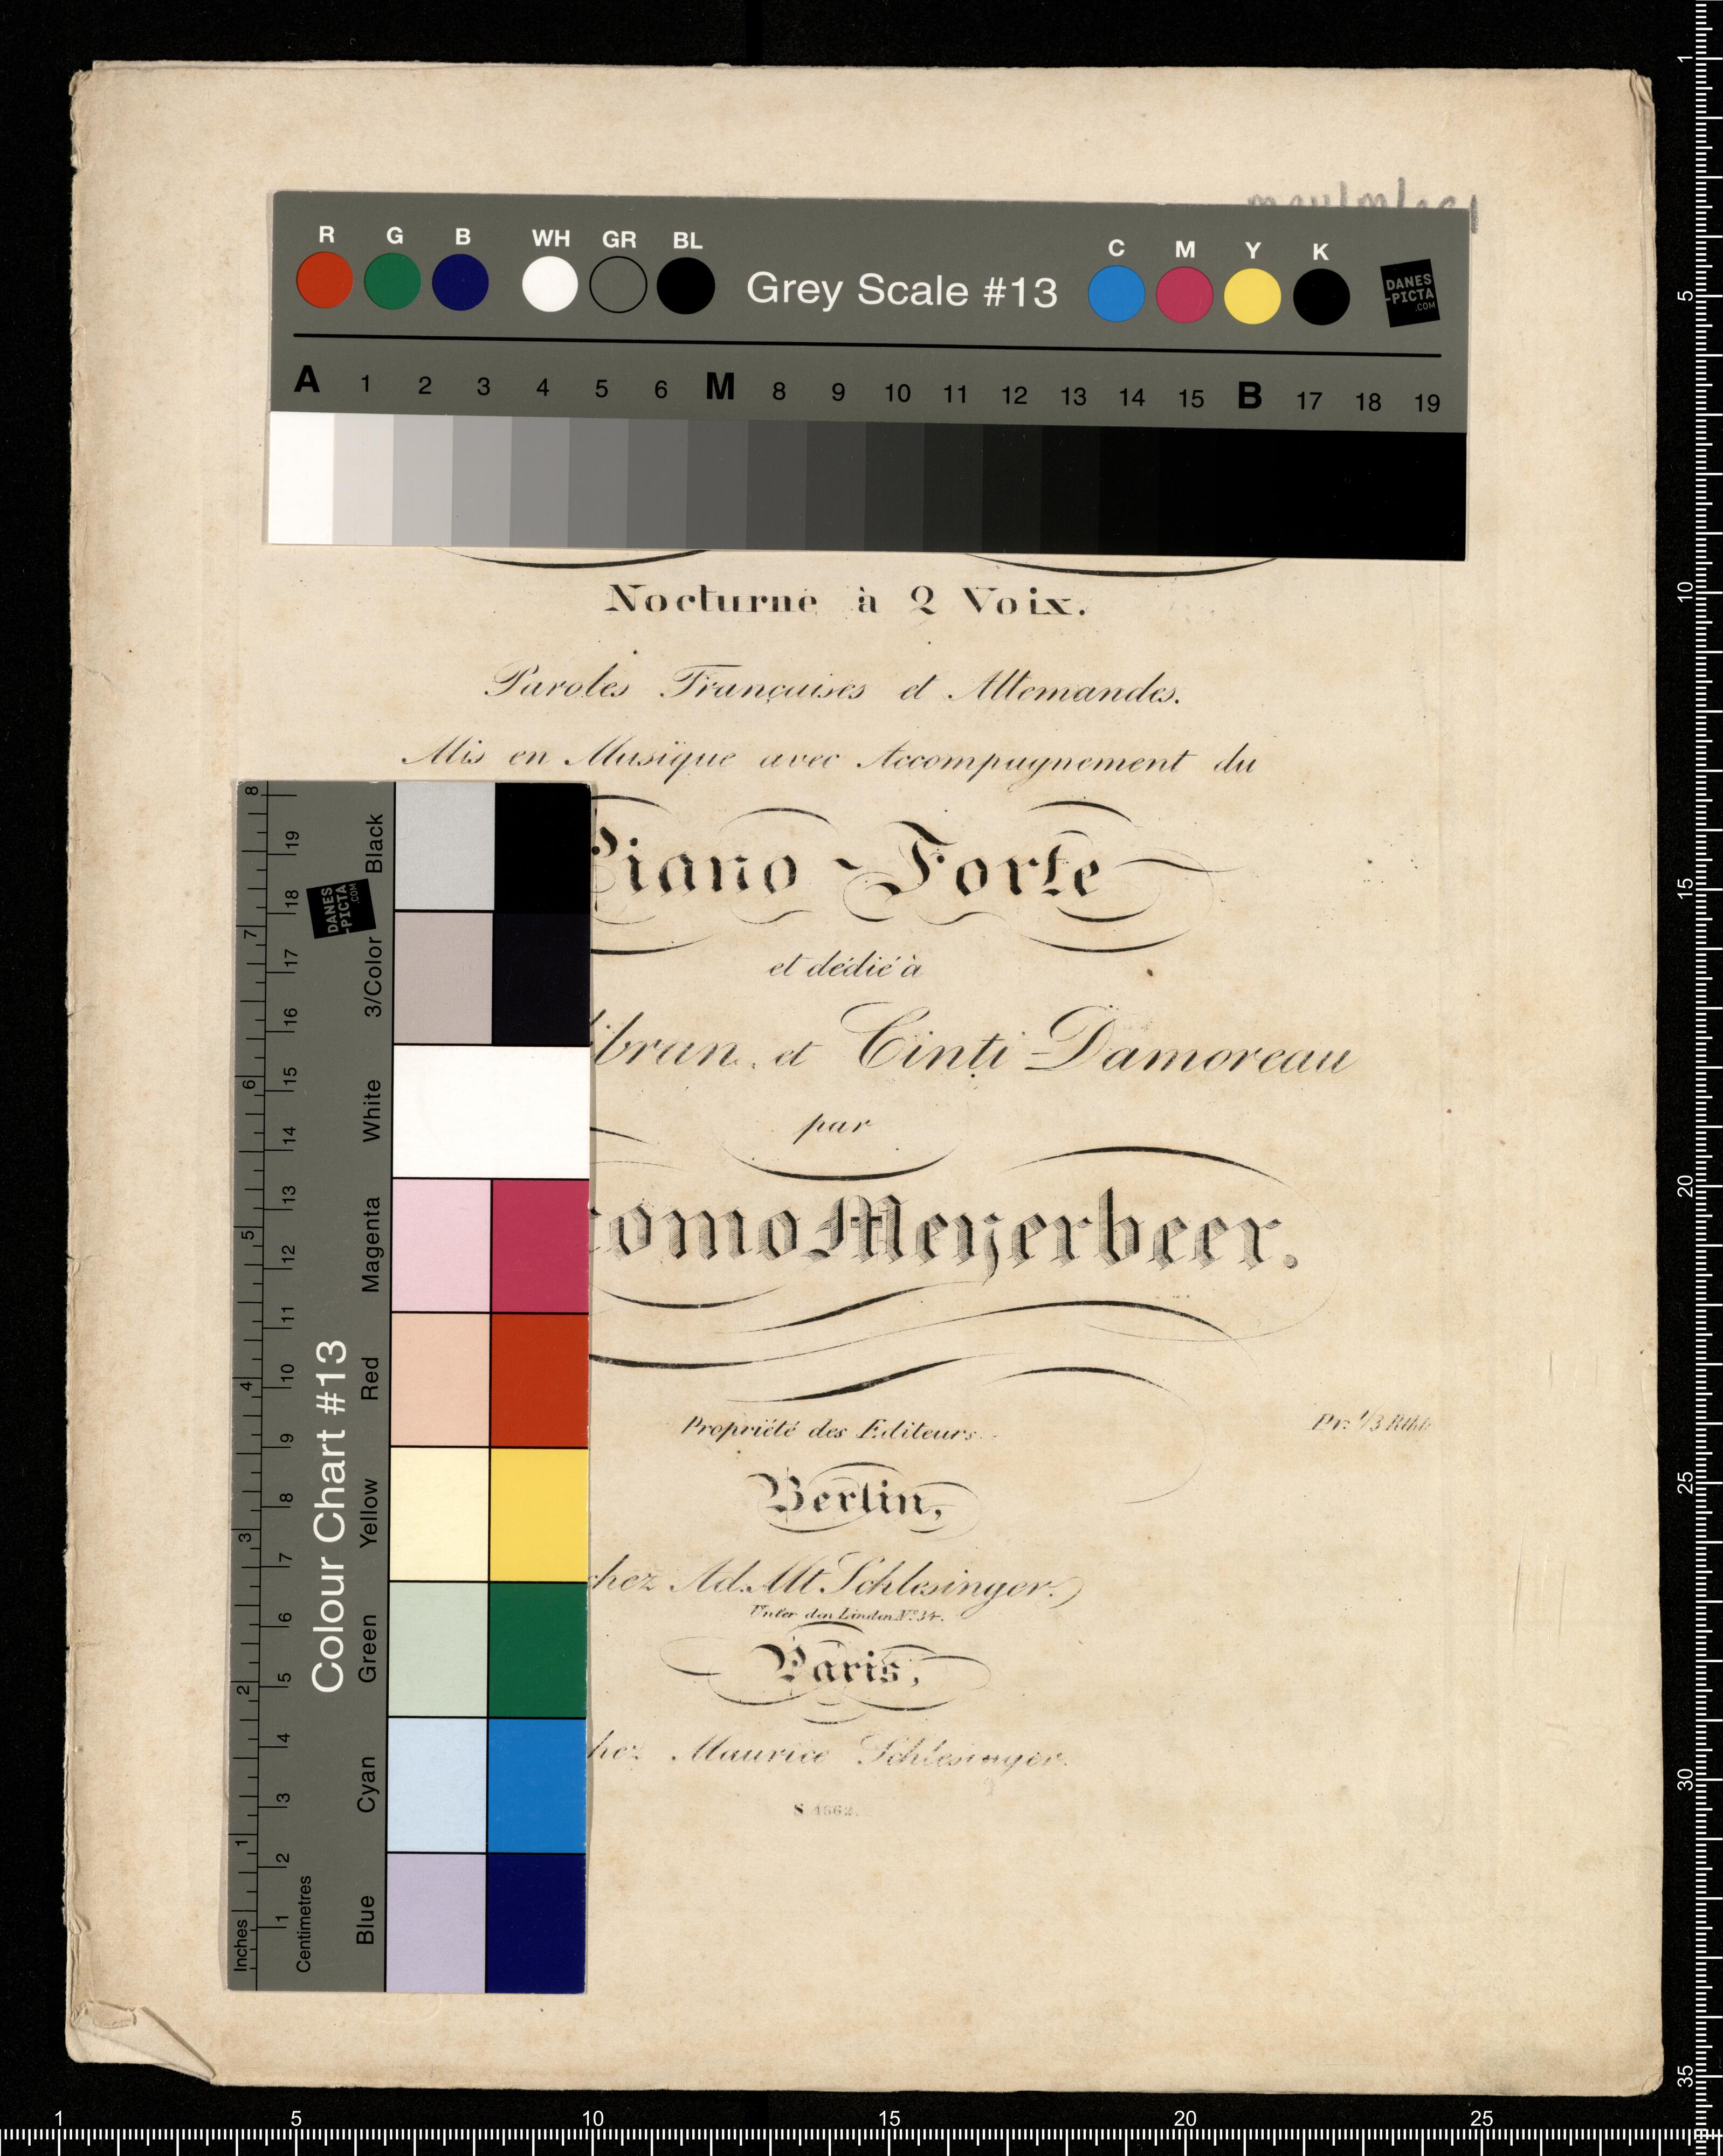 R G B WH GR BL Grey Scale #13 C M Y K
DANES
-PICTA
.COM
A 1 2 3 4 5 6 M 8 9 10 11 12 13 14 15 B 17 18 19
Nocturne à 2 Voix.
Paroles Françaises et Allemandes.
Mis en Musique avec Accompagnement du
Piano-Forte
et dédié à
bran et Cinti-Damoreau
par
omo Meyerbeer.
Propriété des Editeurs.
Pr: 1/3 Rthlr
Berlin,
chez Ad. Mt. Schlesinger.
Unter den Linden No. 34.
Paris,
hez Maurice Schlesinger.
S
Colour Chart #13
DANES
-PICTA
.COM
Blue Cyan Green Yellow Red Magenta White 3/Color Black
Inches 1 2 3 4 5 6 7 8
Centimetres 1 2 3 4 5 6 7 8 9 10 11 12 13 14 15 16 17 18 19
1 5 10 15 20 25 30 35
1 5 10 15 20 25